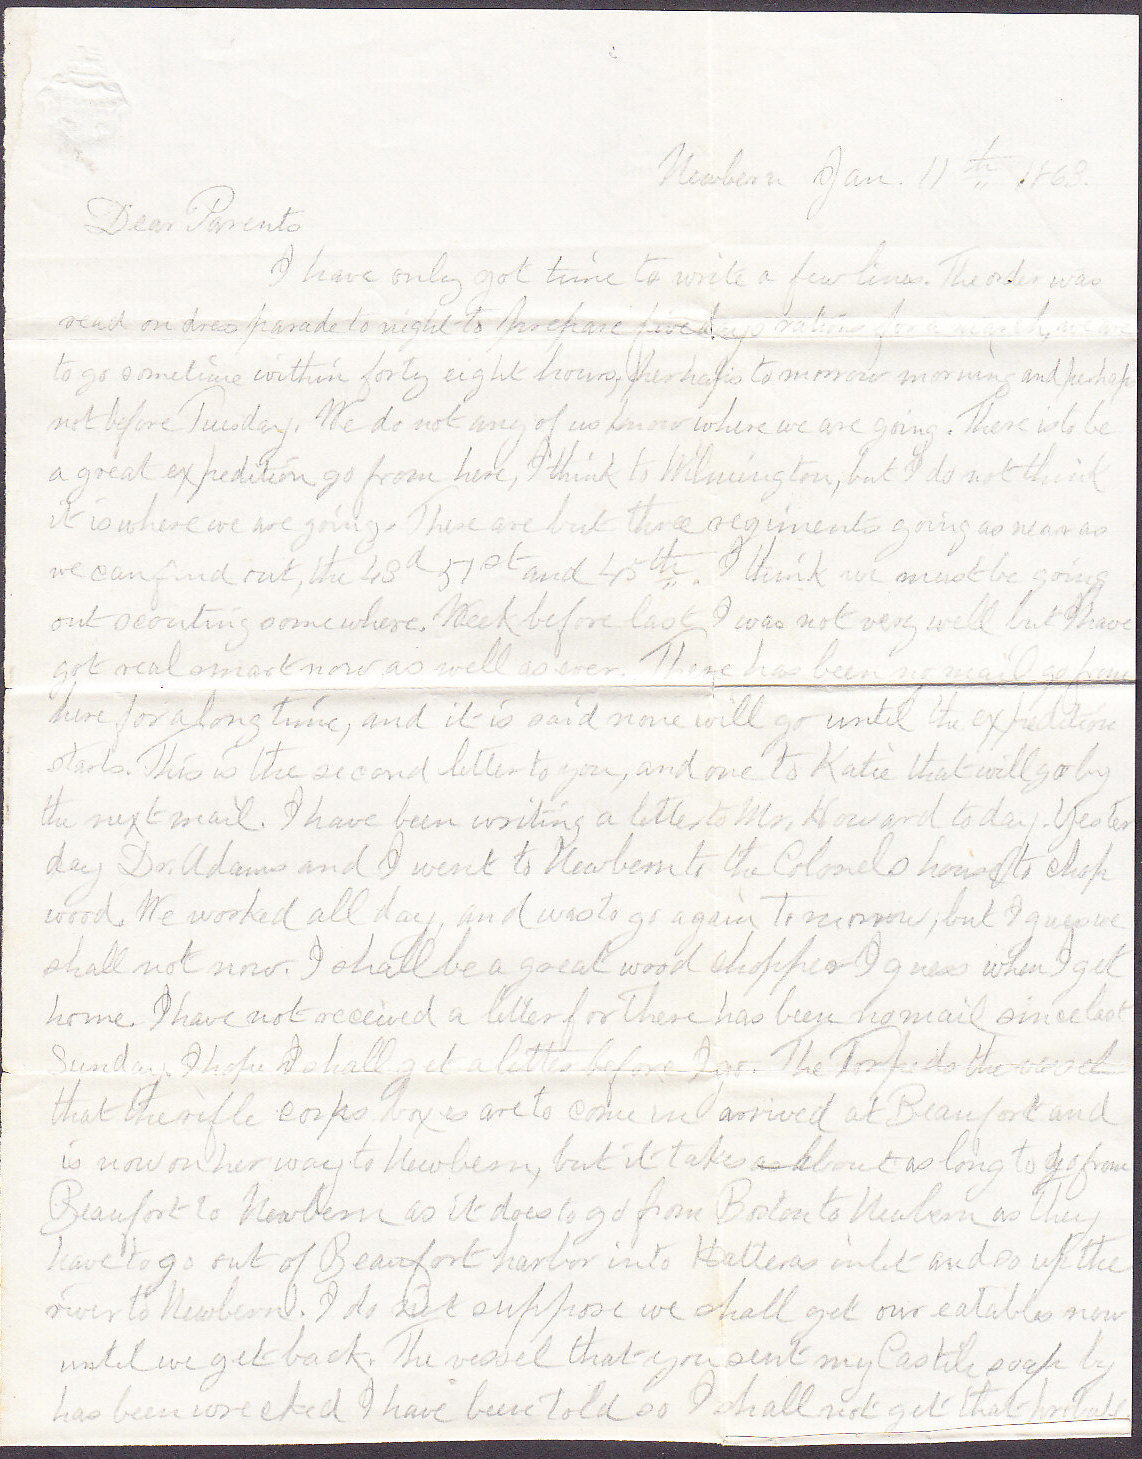 Newbern Jan. 11th 1863.
Dear Parents
I have only got time to write a few lines. The order was
read on dress parade to night to prepare five days rations for a march, we are
to go sometime within forty eight hours, perhaps to morrow morning and perhaps
not before Tuesday. We do not any of us know where we are going. There is to be
a great expedition go from here, I think to Wilmington, but I do not think
it is where we are going. There are but three regiments going as near as
we can find out, the 43d 51st and 45th. I think we must be going
out scouting somewhere. Week before last I was not very well but I have
got real smart now as well as ever. There has been no mail go from
here for a long time, and it is said none will go until the expedition
starts. This is the second letter to you, and one to Katie that will go by
the next mail. I have been writing a letter to Mr. Howard to day. Yester
day Dr. Adams and I went to Newbern to the Colonels house to chop
wood. We worked all day, and was to go again tomorrow, but I guess we
shall not now. I shall be a great wood chopper I guess when I get
home. I have not received a letter for there has been no mail since last
Sunday. I hope I shall get a letter before I go. The Torpedo the vessel
that the rifle corps boxes are to come in arrived at Beaufort and
is now on her way to Newbern, but it takes as about as long to go from
Beaufort to Newbern as it does to go from Boston to Newbern as they
have to go out of Beaufort harbor into Hatteras inlet and so up the
river to Newbern. I do not suppose we shall get our eatables now
until we get back. The vessel that you sent my Castile soap by
has been wrecked I have been told so I shall not get that